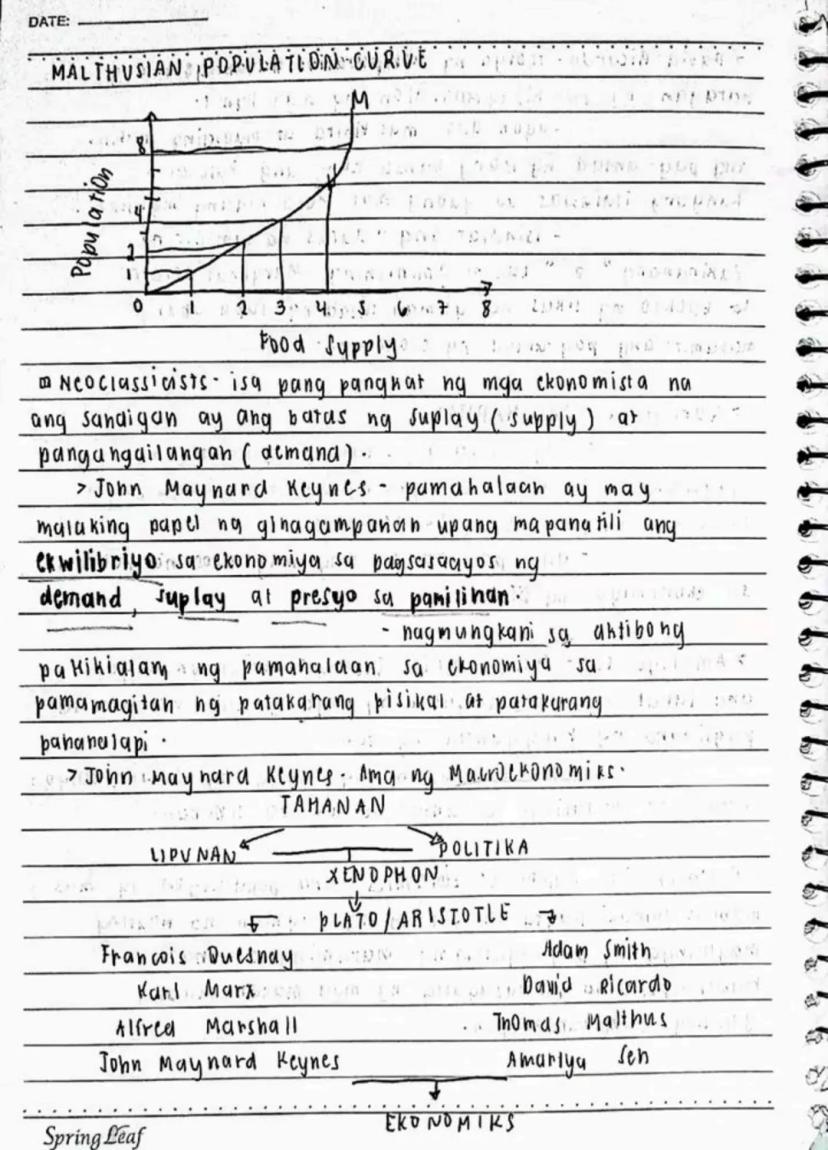 DATE:
MALTHUSIAN POPULATION CURVE
M
8
4
2
1
Population
0 1 2 3 4 5 6 7 8
Food Supply
Neoclassicists - isa pang pangkat ng mga ekonomista na
ang sandigan ay ang batas ng suplay (supply) at
pangangailangan (demand).
> John Maynard Keynes - pamahalaan ay may
malaking papel na ginagampanan upang mapanatili ang
ekwilibriyo sa ekonomiya sa pagsasaayos ng
demand, suplay at presyo sa pamilihan.
- nagmungkani sa aktibong
pakikialam ng pamahalaan sa ekonomiya sa
pamamagitan ng patakarang pisikal at patakarang
pananalapi.
> John Maynard Keynes - Ama ng Macroekonomiks.
TAHANAN
LIPUNAN POLITIKA
XENOPHON
PLATO/ARISTOTLE
Francois Quesnay Adam Smith
Karl Marx David Ricardo
Alfred Marshall Thomas Malthus
John Maynard Keynes Amartya Sen
EKONOMIKS
Spring Leaf